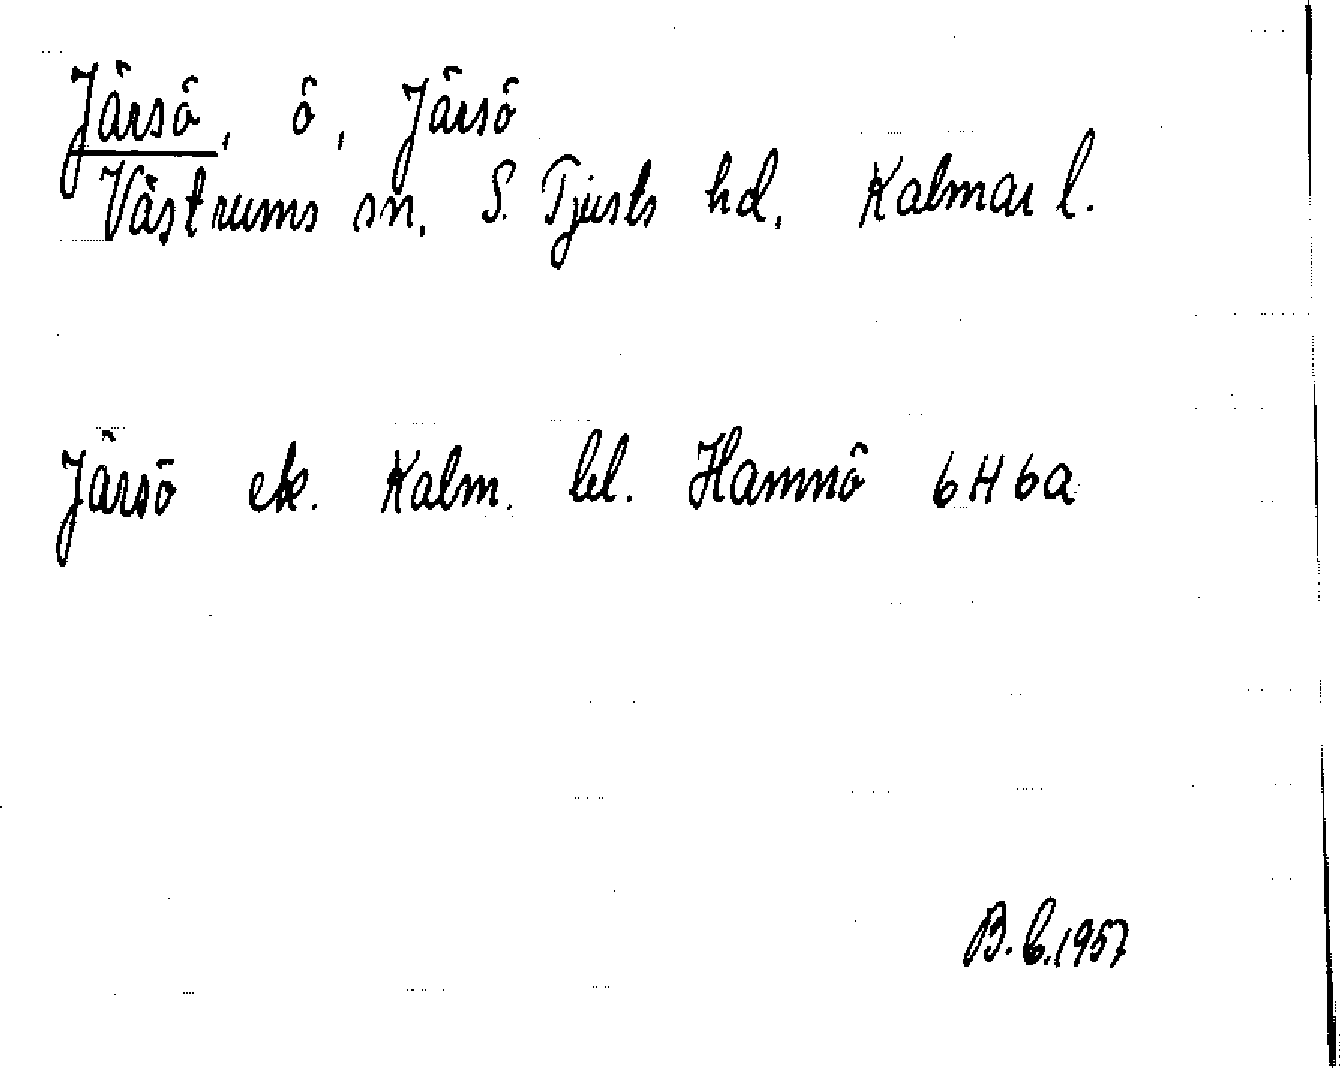 Järsö, ö, Järsö
Västrums sn. S. Tjusts hd. Kalmar l.
Järsö ek. Kalm. bl. Hamnö 6H6a
B. E. 1957